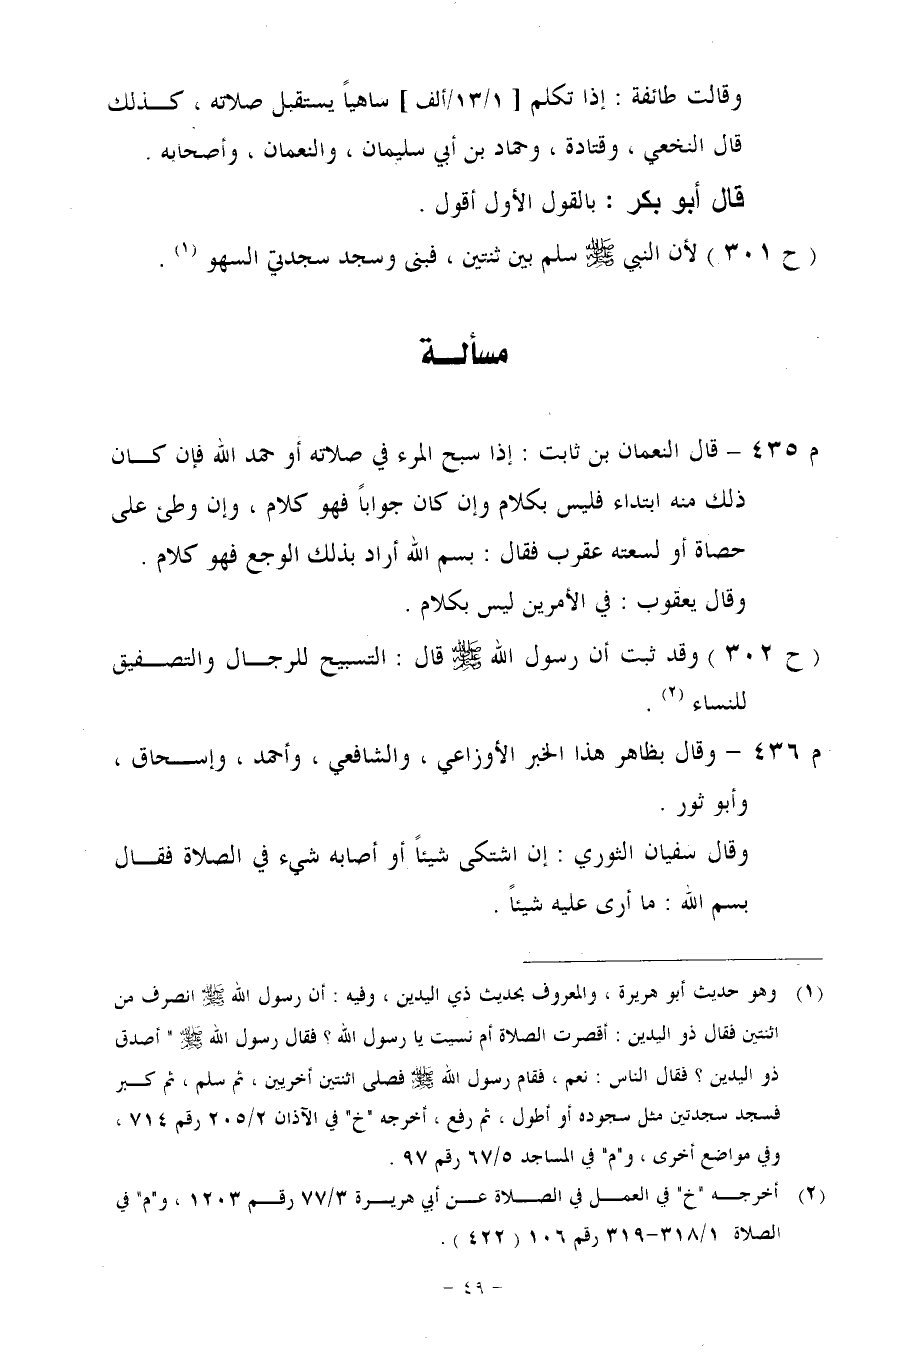 وقالت طائفة : إذا تكلم [ ١٣/١/ألف ] ساهياً يستقبل صلاته ، كـــذلك
قال النخعي ، وقتادة ، وحماد بن أبي سليمان ، والنعمان ، وأصحابه .
قال أبو بكر : بالقول الأول أقول .
( ح ٣٠١ ) لأن النبي ﷺ سلم بين ثنتين ، فبنى وسجد سجدتي السهو (١) .
مسألـــة
م ٤٣٥ – قال النعمان بن ثابت : إذا سبح المرء في صلاته أو حمد الله فإن كـــان
ذلك منه ابتداء فليس بكلام وإن كان جواباً فهو كلام ، وإن وطئ على
حصاة أو لسعته عقرب فقال : بسم الله أراد بذلك الوجع فهو كلام .
وقال يعقوب : في الأمرين ليس بكلام .
( ح ٣٠٢ ) وقد ثبت أن رسول الله ﷺ قال : التسبيح للرجـــال والتصـــفيق
للنساء (٢) .
م ٤٣٦ – وقال بظاهر هذا الخبر الأوزاعي ، والشافعي ، وأحمد ، وإســـحاق ،
وأبو ثور .
وقال سفيان الثوري : إن اشتكى شيئاً أو أصابه شيء في الصلاة فقـــال
بسم الله : ما أرى عليه شيئاً .
(١) وهو حديث أبو هريرة ، والمعروف بحديث ذي اليدين ، وفيه : أن رسول الله ﷺ انصرف من
اثنتين فقال ذو اليدين : أقصرت الصلاة أم نسيت يا رسول الله ؟ فقال رسول الله ﷺ " أصدق
ذو اليدين ؟ فقال الناس : نعم ، فقام رسول الله ﷺ فصلى اثنتين أخريين ، ثم سلم ، ثم كـــبر
فسجد سجدتين مثل سجوده أو أطول ، ثم رفع ، أخرجه "خ" في الآذان ٢٠٥/٢ رقم ٧١٤ ،
وفي مواضع أخرى ، و"م" في المساجد ٦٧/٥ رقم ٩٧ .
(٢) أخرجـــه "خ" في العمـــل في الصـــلاة عـــن أبي هريـــرة ٧٧/٣ رقـــم ١٢٠٣ ، و"م" في
الصلاة ٣١٨/١–٣١٩ رقم ١٠٦ ( ٤٢٢ ) .
– ٤٩ –